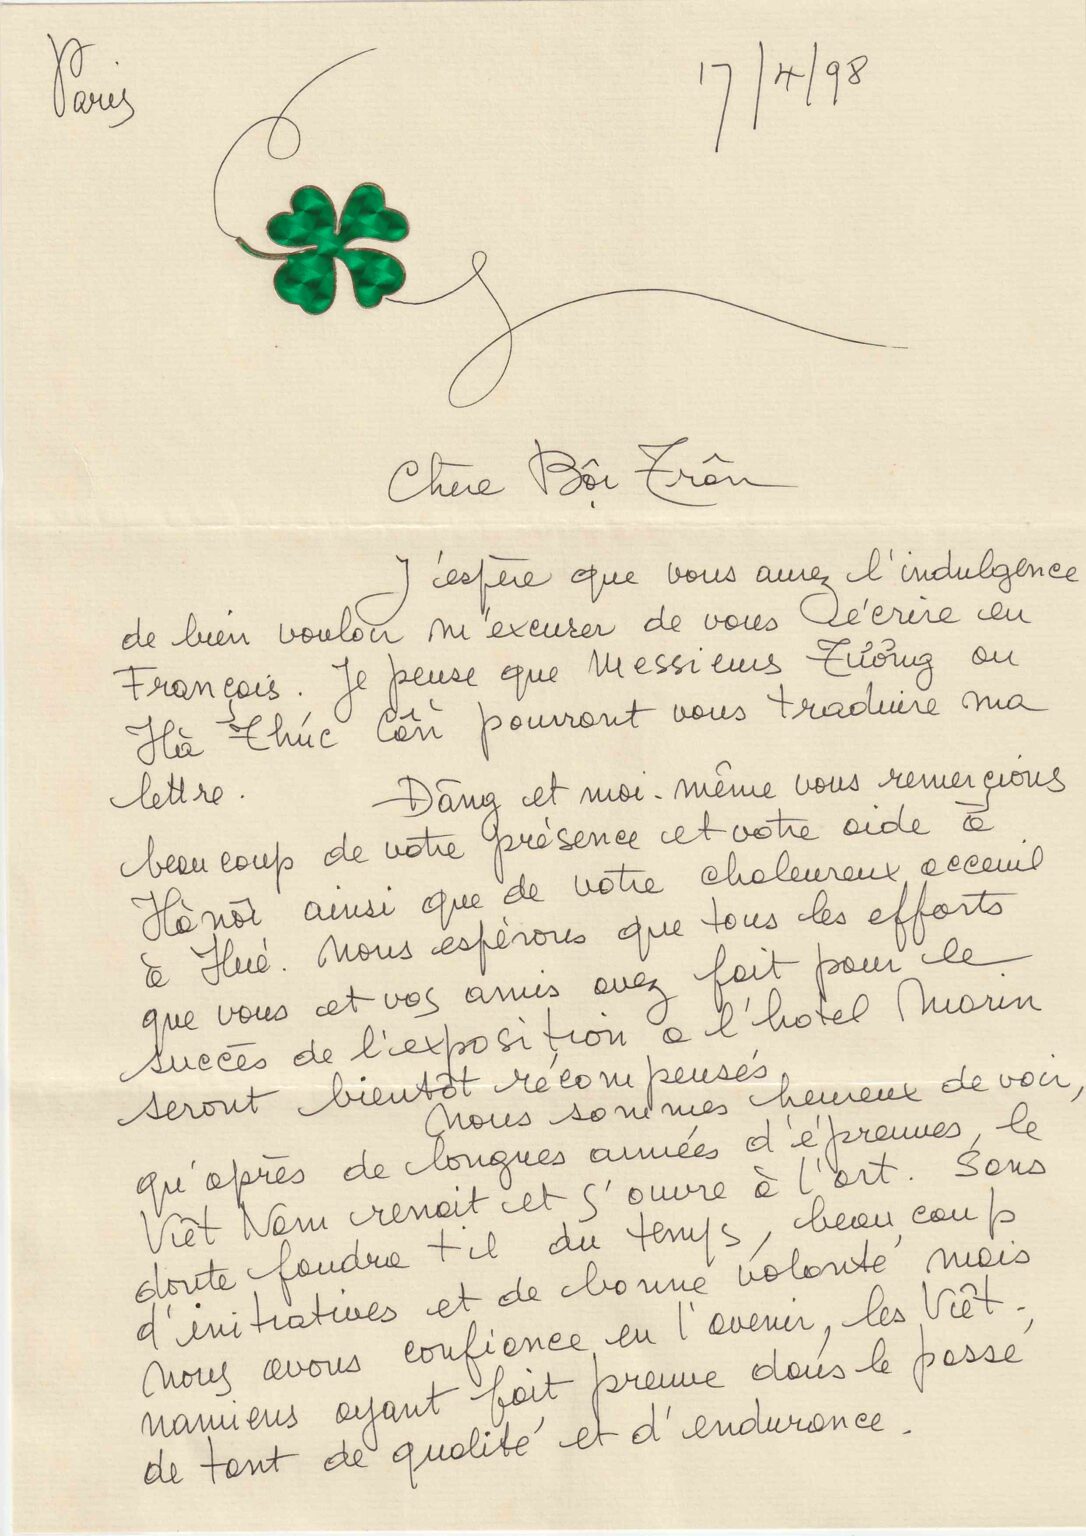 Paris
17/4/98
Chère Bội Trân
J'espère que vous aurez l'indulgence
de bien vouloir m'excuser de vous écrire en
Français. Je pense que Messieurs Tưởng ou
Hà Thúc Cần pourront vous traduire ma
lettre.
Đăng et moi-même vous remerçions
beaucoup de votre présence et votre aide à
Hànôi ainsi que de votre chaleureux acceuil
à Hué. Nous espérons que tous les efforts
que vous et vos amis avez fait pour le
succès de l'exposition a l'hotel Morin
seront bientôt récompensés
Nous sommes heureux de voir,
qu'après de longues années d'épreuves, le
Viêt Nam renait et s'ouvre à l'art. Sans
doute faudra t'il du temps, beaucoup
d'initiatives et de bonne volonté, mais
nous avons confiance en l'avenir, les Viêt-
namiens ayant fait preuve dans le passé
de tant de qualité et d'endurance.